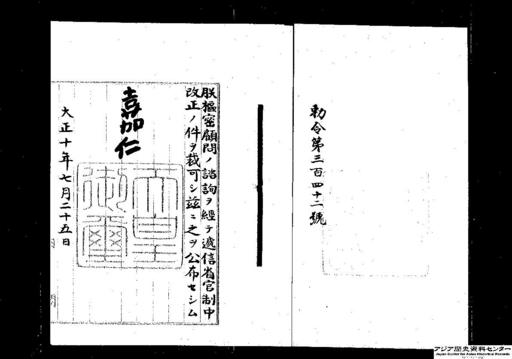 勅令第三百四十二號
朕樞密顧問ノ諮詢ヲ經テ遞信省官制中
改正ノ件ヲ裁可シ茲ニ之ヲ公布セシム
嘉仁
天皇
御璽
大正十年七月二十五日
アジア歴史資料センター
Japan Center for Asian Historical Records